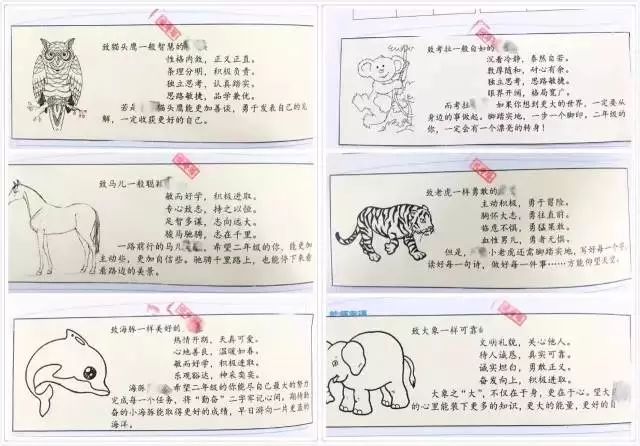 致猫头鹰一般智慧的
性格内敛，正义正直。
条理分明，积极负责。
独立思考，认真踏实。
思路敏捷，品学兼优。
若是 猫头鹰能更加善谈，勇于发表自己的见
解，一定收获更好的自己。
致马儿一般聪
敏而好学，积极进取。
专心致志，持之以恒。
足智多谋，志向远大。
骏马驰骋，志在千里。
一路前行的马儿 ，希望二年级的你，能更加
主动些，更加自信些。驰骋千里路上，也能停下来看
看路边的美景。
致海豚一样美好的
热情开朗，天真可爱。
心地善良，温暖如春。
敏而好学，积极进取。
乐观豁达，神采奕奕。
海豚 ，希望二年级的你能尽自己最大的努力
完成每一个任务，将“勤奋”二字牢记心间，期待勤
奋的小海豚能取得更好的成绩，早日游向一片更蓝的
海洋。
致考拉一般自如的
沉着冷静，泰然自若。
敦厚随和，耐心有余。
独立思考，思路敏捷。
眼界开阔，格局宽广。
而考拉 如果你想到更大的世界，一定要从
身边的事做起。脚踏实地，一步一个脚印，二年级的
你，一定会有一个漂亮的转身！
致老虎一样勇敢的
主动积极，勇于冒险。
胸怀大志，勇往直前。
临危不惧，勇猛果敢。
血性男儿，勇者无惧。
但是， 小老虎还需脚踏实地，写好每一个字，
读好每一句诗，做好每一件事……方能仰望天空。
致大象一样可靠
文明礼貌，关心他人。
待人诚恳，真实可靠。
诚实坦白，勇敢正义。
奋发向上，积极进取。
大象之“大”，不仅在于身，更在于心。望大
的心里能装下更多的知识，更大的能量，更好的自